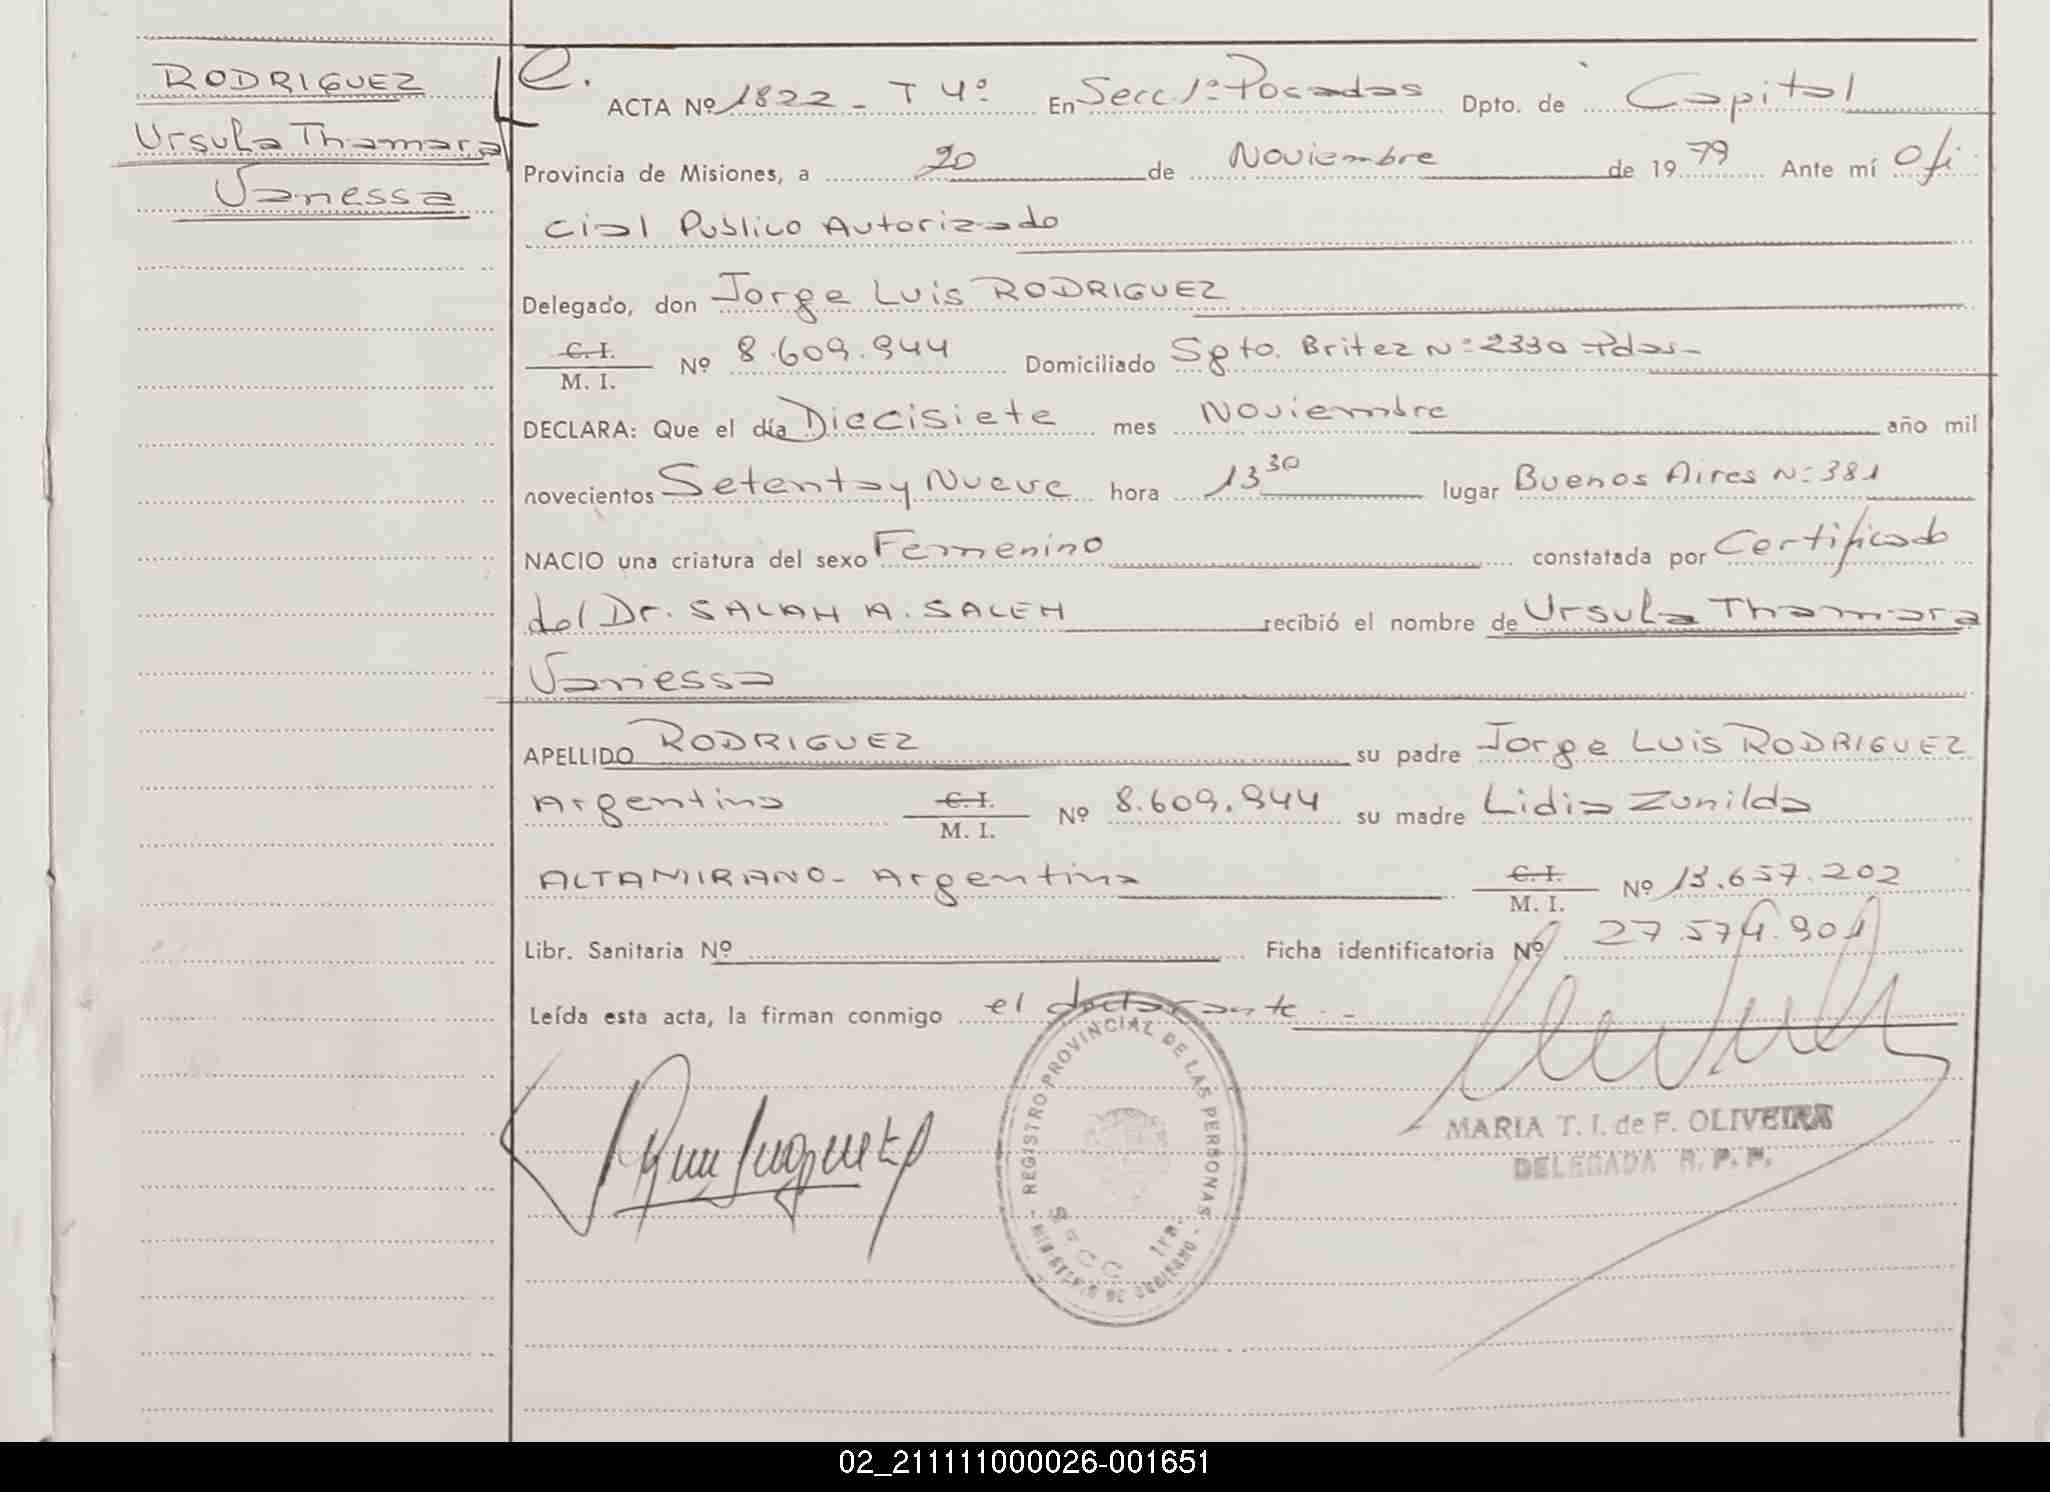 RODRIGUEZ
Ursula Thamara
Vanessa
e.
ACTA Nº 1822 - T 4º En Secc 1º Posadas Dpto. de Capital
Provincia de Misiones, a 20 de Noviembre de 1979 Ante mí Ofi
cial Publico Autorizado
Delegado, don Jorge Luis RODRIGUEZ
C. I.
M. I. Nº 8.609.944 Domiciliado Sgto. Britez Nº 2330 - Pdas -
DECLARA: Que el día Diecisiete mes Noviembre año mil
novecientos Setenta y Nueve hora 13 30 lugar Buenos Aires Nº 381
NACIO una criatura del sexo Femenino constatada por Certificado
del Dr. SALAH A. SALEH recibió el nombre de Ursula Thamara
Vanessa
APELLIDO RODRIGUEZ su padre Jorge Luis RODRIGUEZ
Argentino C. I.
M. I. Nº 8.609.944 su madre Lidia Zunilda
ALTAMIRANO - Argentina C. I.
M. I. Nº 13.657.202
Libr. Sanitaria Nº Ficha identificatoria Nº 27.574.901
Leída esta acta, la firman conmigo el declarante. -
REGISTRO PROVINCIAL DE LAS PERSONAS
MINISTERIO DE GOBIERNO
SECC. 1ra.
MARIA T. I. de F. OLIVEIRA
DELEGADA R. P. P.
02_211111000026-001651